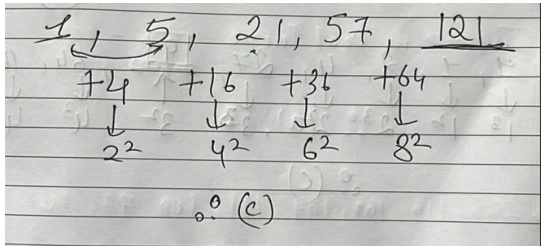 1, 5, 21, 57, 121
+4 +16 +36 +64
↓ ↓ ↓ ↓
2² 4² 6² 8²
∴ (C)